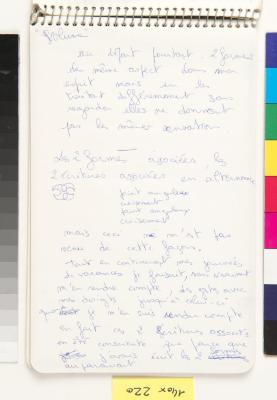 au départ pourtant, 2 formes
de même aspect dans mon
esprit mais en les
traitant différemment sans
regarder elles ne donnent
pas la même sensation
Les 2 formes associées, les
2 écritures associées en alternance
point anguleux
croisement
point anguleux
croisement
mais ceci ne m'est pas
venu de cette façon.
tout en continuant mes journées
de vacances je faisais, sans vraiment
m'en rendre compte, des gestes avec
mes doigts jusqu'à celui-ci
que je m'en suis rendu compte
en fait ces 2 écritures associées
en été consciente que parce que
j'avais écrit les 2 formes
auparavant
140x 220